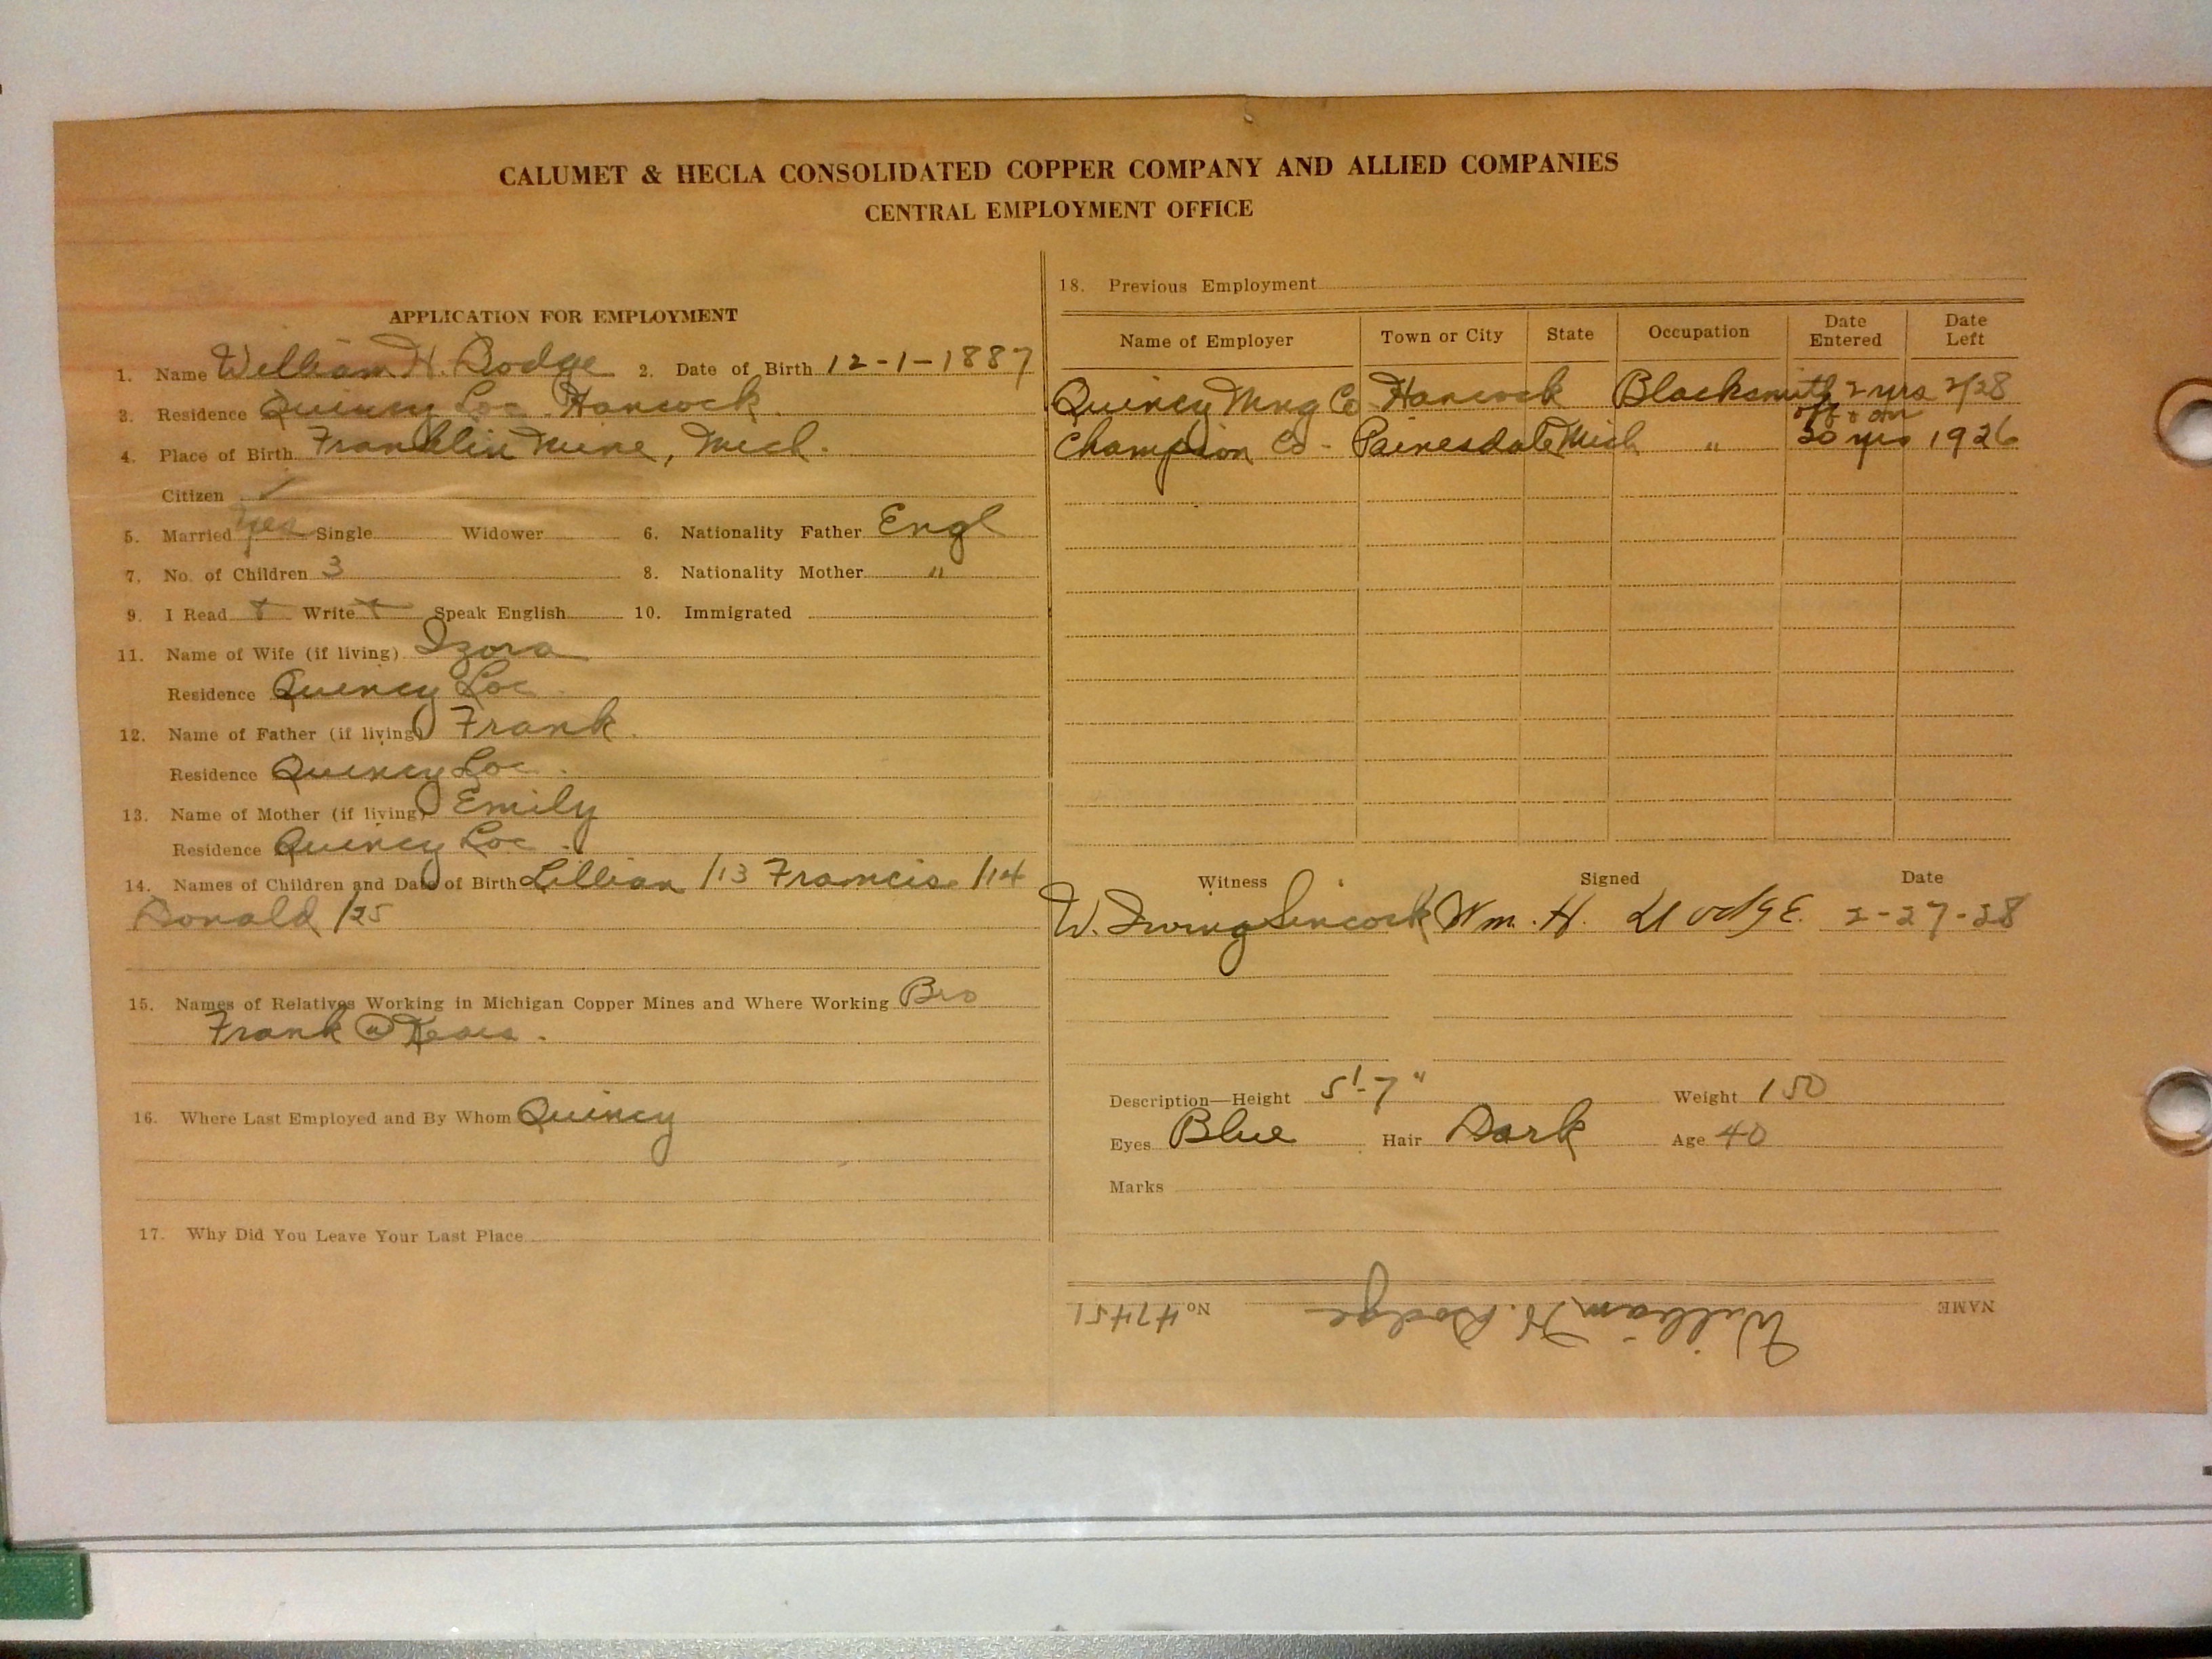 CALUMET & HECLA CONSOLIDATED COPPER COMPANY AND ALLIED COMPANIES
CENTRAL EMPLOYMENT OFFICE
APPLICATION FOR EMPLOYMENT
1. Name William H. Dodge 2. Date of Birth 12-1-1887
3. Residence Quincy Loc. Hancock.
4. Place of Birth Franklin Mine, Mich.
Citizen ✓
5. Married yes Single Widower 6. Nationality Father Engl
7. No. of Children 3 8. Nationality Mother "
9. I Read Write Speak English 10. Immigrated
11. Name of Wife (if living) Izora
Residence Quincy Loc.
12. Name of Father (if living) Frank.
Residence Quincy Loc.
13. Name of Mother (if living) Emily
Residence Quincy Loc.
14. Names of Children and Date of Birth Lillian /13 Francis /14
Donald /25
15. Names of Relatives Working in Michigan Copper Mines and Where Working Bro
Frank @
16. Where Last Employed and By Whom Quincy
17. Why Did You Leave Your Last Place
18. Previous Employment
Name of Employer Town or City State Occupation Date Entered Date Left
Quincy Mng Co Hancock Blacksmith 2 yrs 2/28
off & on
Champion Co - Painesdale Mich " 20 yrs 1926
Witness Signed Date
W. Irving Sincock Wm. H. Dodge 2-27-28
Description—Height 5'-7" Weight 150
Eyes Blue Hair Dark Age 40
Marks
NAME William H. Dodge No 47451